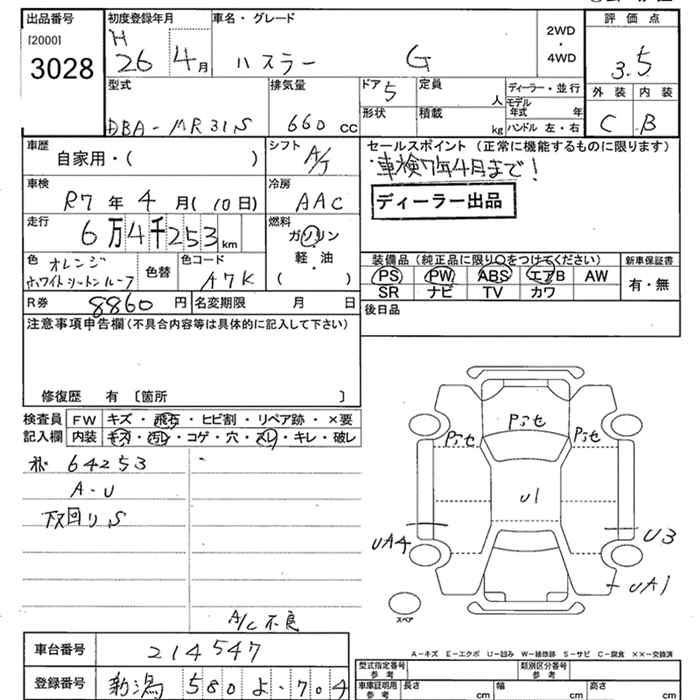 出品番号 初度登録年月 車名・グレード 評価点
[2000] H
3028 26 4月 ハスラー G 2WD・4WD 3.5
型式 排気量 ドア 5 定員 人 ディーラー・並行 外装 内装
モデル年式 年
DBA-MR31S 660cc 形状 積載 kg ハンドル 左・右 C B
車歴 自家用・( ) シフト A/T セールスポイント (正常に機能するものに限ります)
車検7年4月まで!
車検 R7年4月(10日) 冷房 AAC ディーラー出品
走行 6万4千253km 燃料 ガソリン・軽油
( ・ )
色 オレンジ 色替 色コード A7K 装備品(純正品に限り○をつけてください) 新車保証書
ホワイトツートンルーフ PS PW ABS エアB AW 有・無
SR ナビ TV カワ
R券 8860円 名変期限 月 日 後日品
注意事項申告欄(不具合内容等は具体的に記入して下さい)
修復歴 有 〔箇所 〕
検査員 FW キズ・飛石・ヒビ割・リペア跡・×要
記入欄 内装 キズ・汚レ・コゲ・穴・スレ・キレ・破レ
64253
A-U
下回りS
A/C不良
Pセ
Pセ Pセ
U1
UA4 U3
UA1
スペア
A-キズ E-エクボ U-凹み W-補修跡 S-サビ C-腐食 ××-交換済
車台番号 214547
型式指定番号 参考 類別区分番号 参考
登録番号 新潟 580 よ・704
車庫証明用 参考 長さ cm 幅 cm 高さ cm